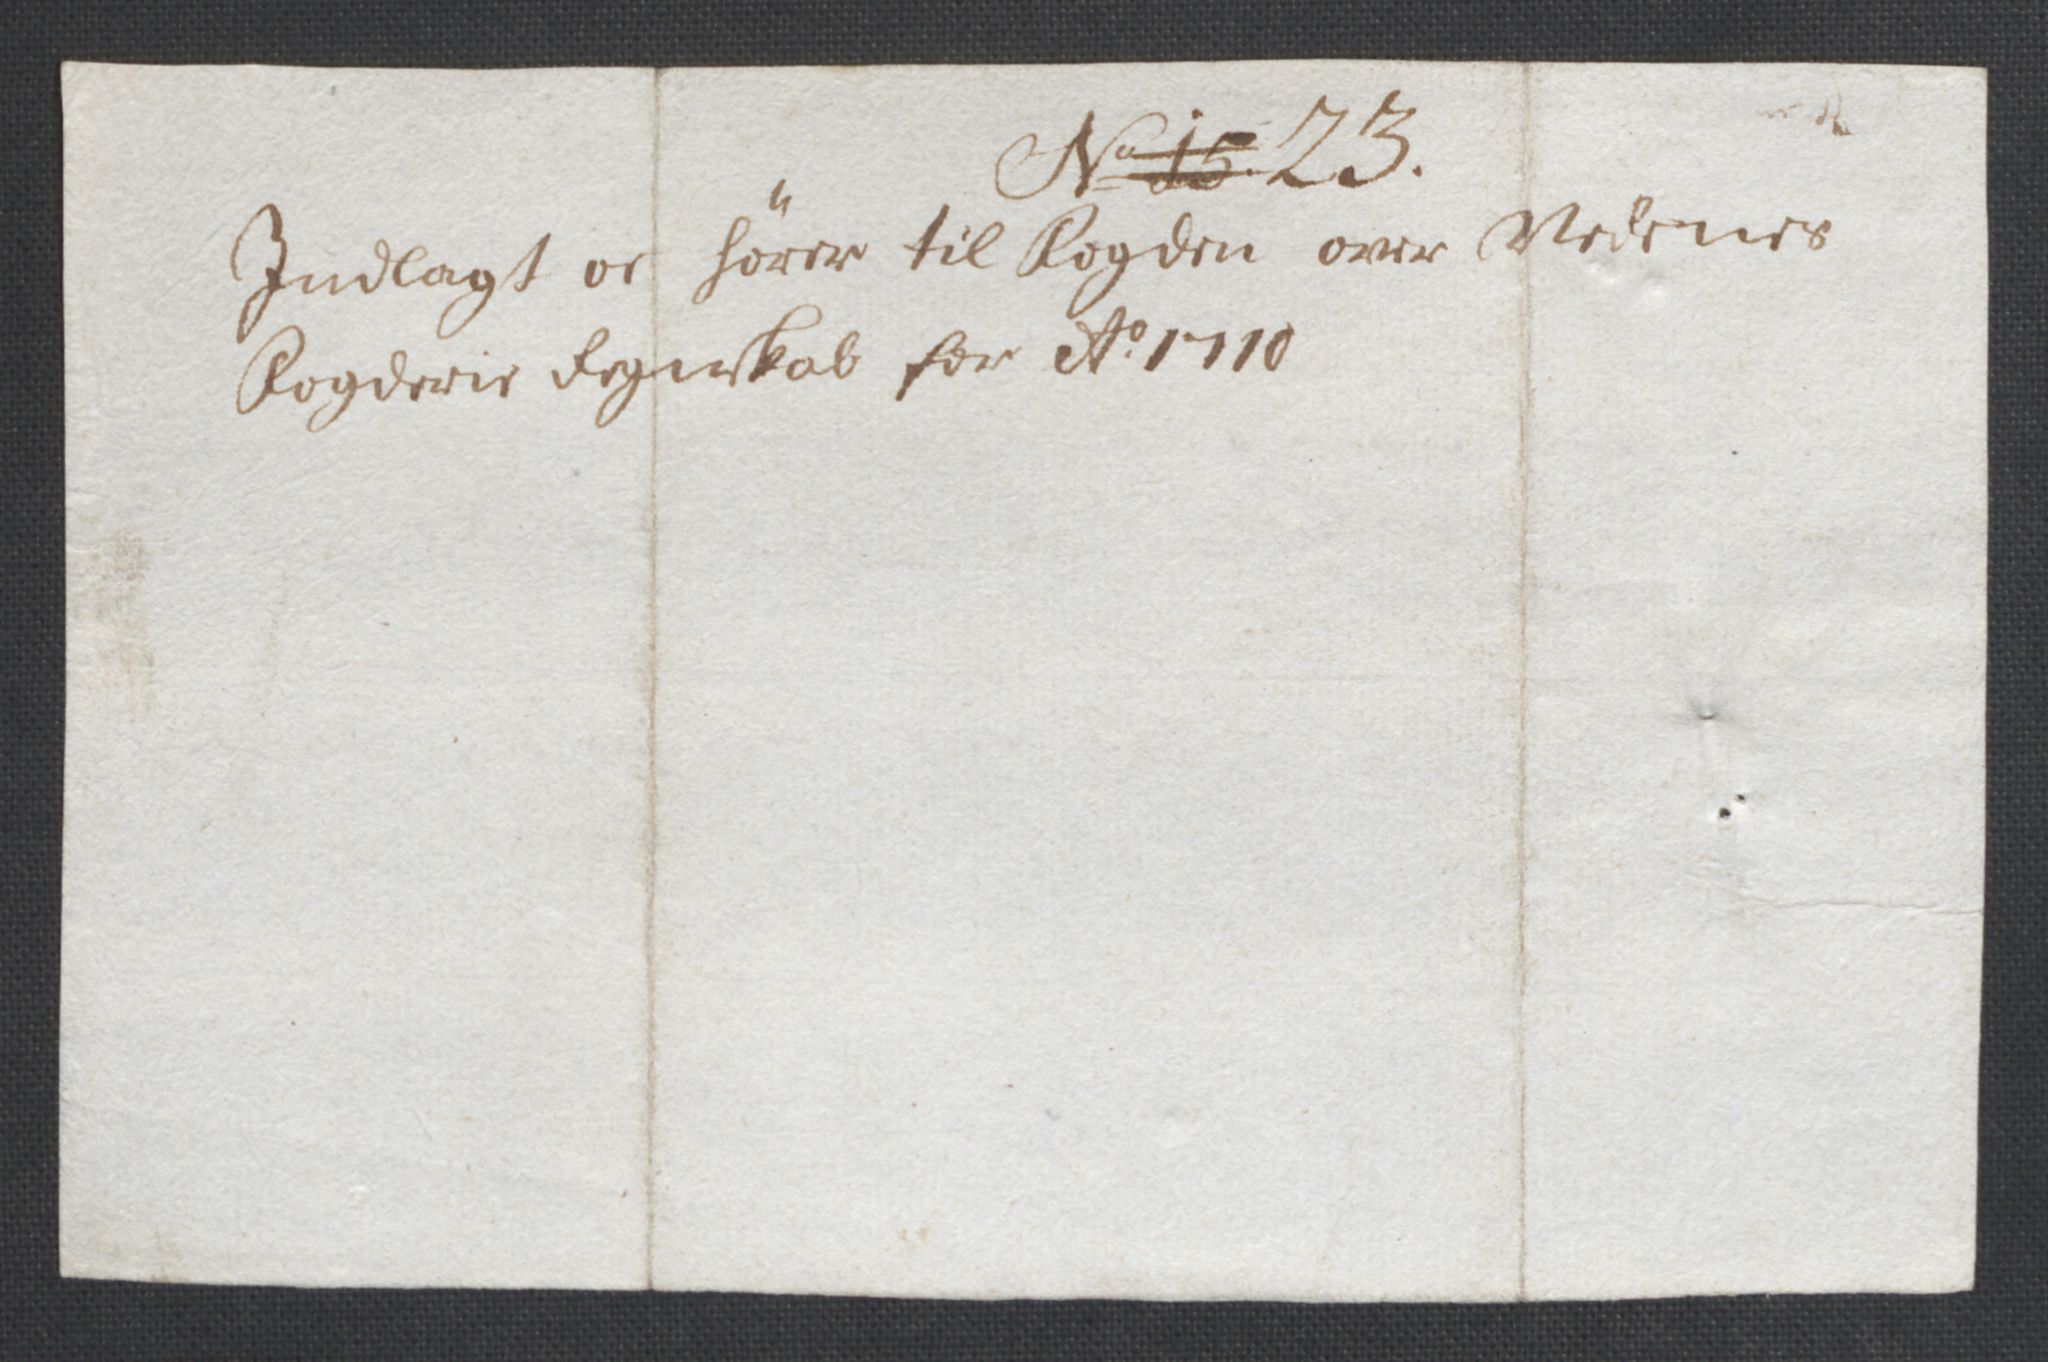 No 15. 23.
Indlagt oc hörer til Fogden over Nedenes
Fogderie Regnskab for Ao. 1710